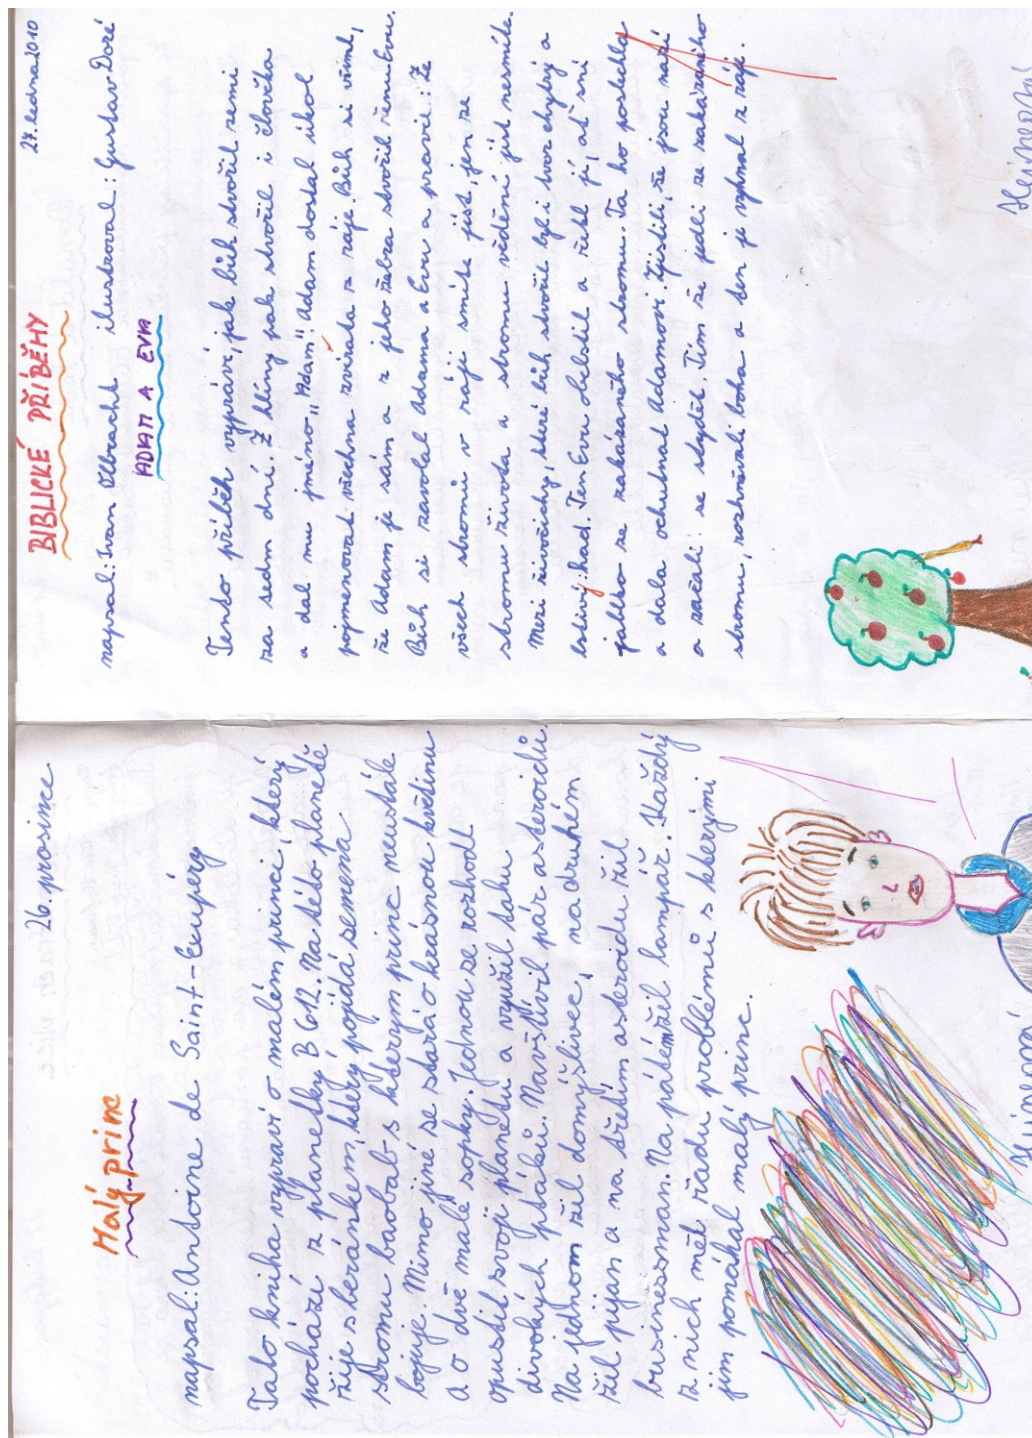 Malý princ
26. prosince
napsal: Antoine de Saint-Exupéry
Tato kniha vypraví o malém princi, který
pochází z planetky B 612. Na této planetě
žije s beránkem, který pojídá semena
stromu baobab - s kterým princ neustále
bojuje. Mimo jine se stará o krásnou květinu
a o dvě malé sopky. Jednou se rozhodl
opustit svoji planetu a využil tahu
divokých ptáků. Navštívil pár asteroidů.
Na jednom žil domýšlivec, na druhém
žil pijan a na třetím asteroidu žil
businessman. Na pátém žil lampář. Každý
z nich měl řadu problémů s kterými
jim pomáhal malý princ.
BIBLICKÉ PŘÍBĚHY
27. ledna 2010
napsal: Ivan Olbracht ilustroval: Gustav Doré
ADAM A EVA
Tento příběh vypráví, jak bůh stvořil zemi
za sedm dní. Z hlíny pak stvořil i člověka
a dal mu jméno „Adam". Adam dostal úkol
pojmenovat všechna zvířata z ráje. Bůh si všiml,
že Adam je sám a z jeho žebra stvořil ženu Evu.
Bůh si zavolal Adama a Evu a pravil: Že
všech stromů v ráji smíte jíst, jen ze
stromu života a stromu vědění jíst nesmíte.
Mezi živočichy, které bůh stvořil byl i tvor chytrý a
lstivý: had. Ten Evu oblstil a řekl jí, ať sní
jablko ze zakázaného stromu. Ta ho poslechla
a dala ochutnat Adamovi. Zjistili, že jsou nazí
a začali se stydět. Tím že jedli ze zakázaného
stromu, rozhněvali boha a ten je vyhnal z ráje.